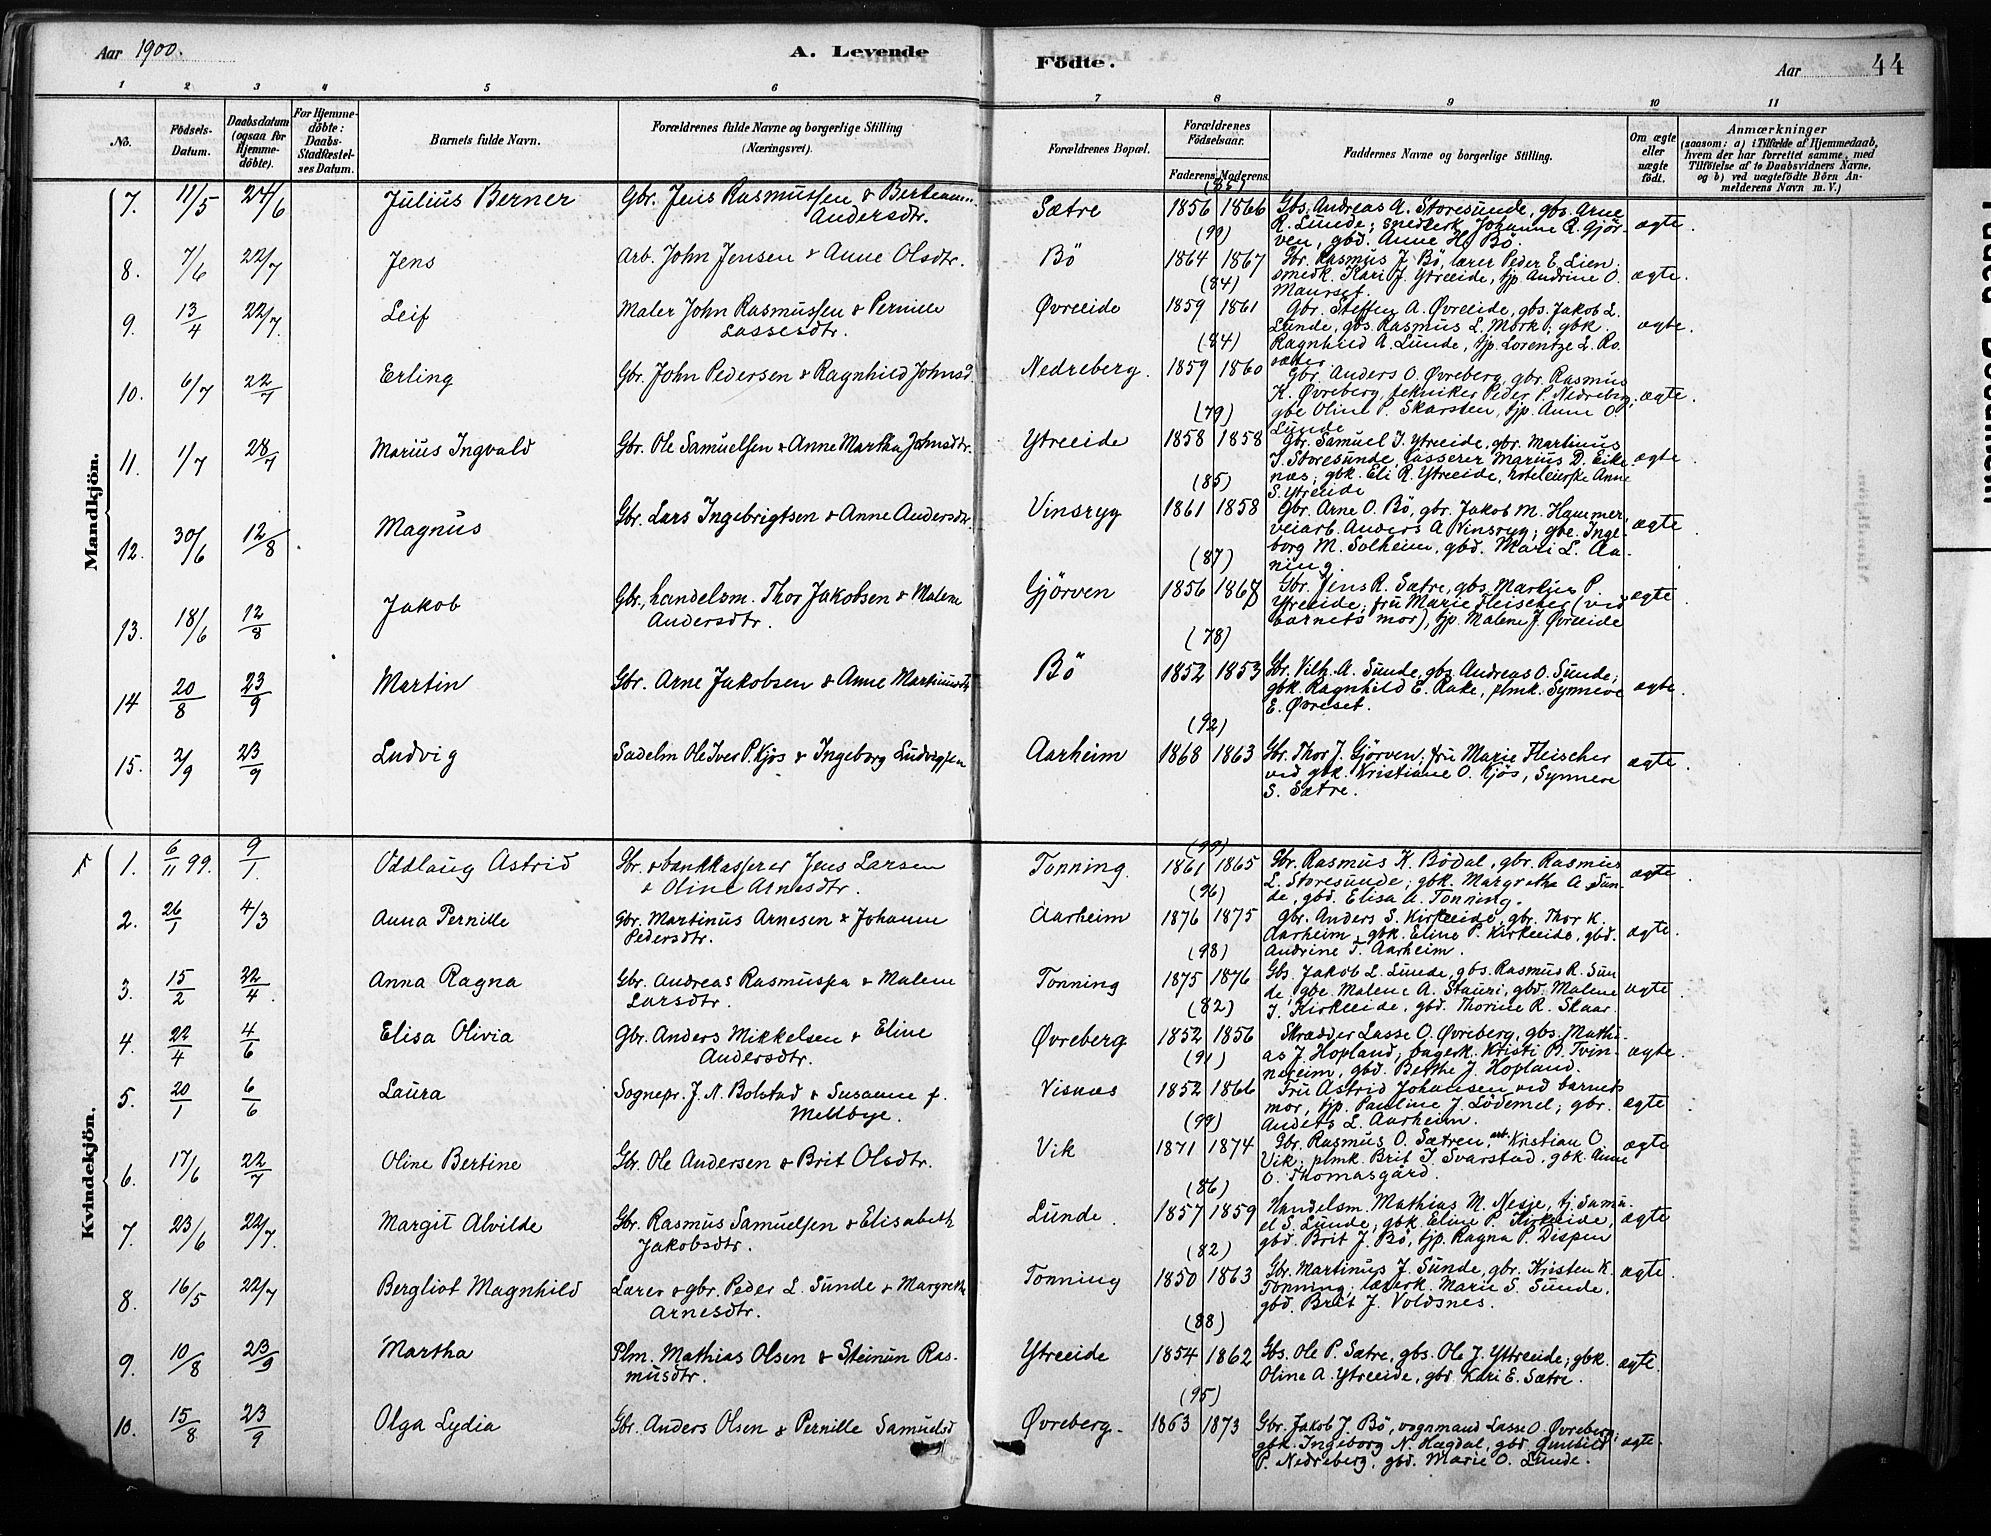 Aar 1900.
A. Levende
Födte.
Aar
44
1 2 3 4 5 6 7 8 9 10 11
No.
Födsels-Datum.
Daabsdatum (ogsaa for Hjemme-döbte).
For Hjemme-döbte: Daabs-Stadfæstel-ses Datum.
Barnets fulde Navn.
Forældrenes fulde Navne og borgerlige Stilling (Næringsvei).
Forældrenes Bopæl.
Forældrenes Födselsaar.
Faderens. Moderens.
Faddernes Navne og borgerlige Stilling.
Om ægte eller uægte födt.
Anmærkninger
(saasom: a) i Tilfælde af Hjemmedaab, hvem der har forrettet samme, med Tilföielse af to Daabsvidners Navne, og b) ved uægtefödte Börn An-melderens Navn m. V.)
Mandkjön.
7. 11/5 24/6 Julius Berner Gbr. Jens Rasmussen & Bertean Andersdtr. Sætre (85) 1856 1866 Gbs. Andreas A. Storesunde, gbs. Arne
R. Lunde; snedkerk Johanne R. Gjör-
ven, gbd. Anne H. Bö. ægte.
8. 7/6 22/7 Jens Arb. John Jensen & Anne Olsdtr. Bö (90) 1864 1867 Gbr. Rasmus J. Bö, lærer Peder E. Lien;
smedk. Kari J. Ytreeide, tjp. Andrine O.
Maurset. ægte.
9. 13/4 22/7. Leif Maler John Rasmussen & Pernille Lassesdtr. Øvreeide (84) 1859 1861 Gbr. Steffen A. Øvreeide, gbs. Jakob L.
Lunde, gbs. Rasmus L. Mork; gbk.
Ragnhild A. Lunde, tjp. Lorentze L. Ro.
sæter ægte.
10. 6/7 22/7 Erling Gbr. John Pedersen & Ragnhild Johnsd. Nedreberg. (84) 1859 1860 Gbr. Anders O. Øvreberg, gbr. Rasmus
K. Øvreberg, tekniker Peder P. Nedreberg;
gbe Oline P. Skarsten, tjp. Anne O.
Lunde ægte.
11. 1/7 28/7 Marius Ingvald Gbr. Ole Samuelsen & Anne Martha Johnsdtr. Ytreeide (79) 1858 1858 Gbr. Samuel J. Ytreeide, gbr. Martinus
J. Storesunde, kasserer Marius D. Eike
næs; gbk. Eli R. Ytreeide, hoteleierske Anne
S. Ytreeide ægte.
12. 30/6 12/8 Magnus Gbr. Lars Ingebrigtsen & Anne Andersdtr. Vinsryg (85) 1861 1858 Gbr. Arne O. Bö, gbr. Jakob M. Hammer
veiarb. Anders A Vinsryg; gbe. Inge-
borg M. Solheim, gbd. Mari L. Aa-
ning. ægte
13. 18/6 12/8 Jakob Gbr., handelsm. Thor Jakobsen & Malene Andersdtr. Gjörven (87) 1856 1868 Gbr. Jens R. Sætre, gbs. Martin P.
Ytreeide; fru Marie Fleischer (ved
barnets mor), tjp. Malene J. Øvreeide ægte
14 20/8 23/9 Martin Gbr. Arne Jakobsen & Anne Martinusdtr Bö (78) 1852 1853 Gbr. Vilh. A. Sunde, gbs Andreas O. Sunde;
gbk. Ragnhild E. Rake, plmk. Synneve
E. Øvreset. ægte.
15. 2/9 23/9 Ludvig Sadelm Ole Iver P. Kjös & Ingeborg Ludvigsen Aarheim (92) 1868 1863 Gbr. Thor J. Gjörven; fru Marie Fleischer
ved gbk. Kristiane O. Kjös, Synneve
S. Sætre. ægte.
Kvindekjön.
1. 6/11 99. 9/1. Oddlaug Astrid Gbr. & bankkasserer Jens Larsen & Oline Arnesdtr. Tonning. (99) 1861 1865 Gbr. Rasmus K. Bödal, gbr. Rasmus
L. Storesunde; gbk. Margrethe A. Sun-
de, gbd. Elisa A. Tonning. ægte.
2. 26/1 4/3 Anna Pernille Gbr. Martinus Arnesen & Johanne Pedersdtr. Aarheim (96) 1876 1875 Gbr. Anders S. Kirkeeide, gbr. Thor K.
Aarheim, gbk. Eline P. Kirkeeide, gbd.
Andrine T. Aarheim. ægte.
3. 15/2 22/4. Anna Ragna Gbr. Andreas Rasmussen & Malene Larsdtr. Tonning (98) 1875 1876 Gbs. Jakob L. Lunde, gbs. Rasmus R. Sun
de; gbe. Malene A. Stauri, gbd. Malene
J. Kirkeeide, gbd. Thorine R. Skaar. ægte.
4. 22/4 4/6 Elisa Olivia Gbr. Anders Mikkelsen & Eline Andersdtr. Øvreberg (82) 1852 1856 Skrædder Lasse O. Øvreberg, gbs. Mathi-
as J. Hopland, bagerk. Kristi B. Tvin-
nereim, gbd. Berthe J. Hopland. ægte.
5. 20/1 6/6 Laura Sognepr. J. A. Bolstad & Susanne f. Mellbye. Visnæs (91) 1852 1866 Fru Astrid Johansen ved barnets
mor, tjp. Pauline J. Lödemel; gbr.
Anders L. Aarheim. ægte
6. 17/6 22/7 Oline Bertine Gbr. Ole Andersen & Brit Olsdtr. Vik (99) 1871 1874 Gbr. Rasmus O. Sætren, arb. Kristian O.
Vik; plmk. Brit J. Svarstad, gbk. Anne
O. Thomasgård. ægte
7. 23/6 22/7. Margit Alvilde Gbr. Rasmus Samuelsen & Elisabeth Jakobsdtr. Lunde. (86) 1857 1859 Handelsm. Mathias M. Nesje, tj. Samu-
el S. Lunde; gbk. Eline P. Kirkeeide,
gbd. Brit J. Bö, tjp. Ragna P. Dispen ægte
8. 16/5 22/7 Bergliot Magnhild Lærer & gbr. Peder L. Sunde & Margrethe Arnesdtr. Tonning (82) 1850 1863 Gbr. Martinus J. Sunde, gbr. Kristen K.
Tonning, lærerk. Marie S. Sunde,
gbd. Brit J. Voldsnes. ægte.
9. 10/8 23/9 Martha Plm. Mathias Olsen & Steinun Ras-musdtr. Ytreeide (88) 1854 1862 Gbs. Ole P. Sætre, gbs. Ole J. Yttreeide; gbk.
Oline A. Ytreeide, gbd Kari E. Sætre. ægte.
10. 15/8 23/9 Olga Lydia Gbr. Anders Olsen & Pernille Samuelsd Øvreberg. (95) 1863 1873 Gbr. Jakob J. Bö, vognmand Lasse O. Øvreberg;
gbk. Ingeborg N. Hægdal, gbd. Gunhild
P. Nedreberg, gbd. Marie O. Lunde. ægte.